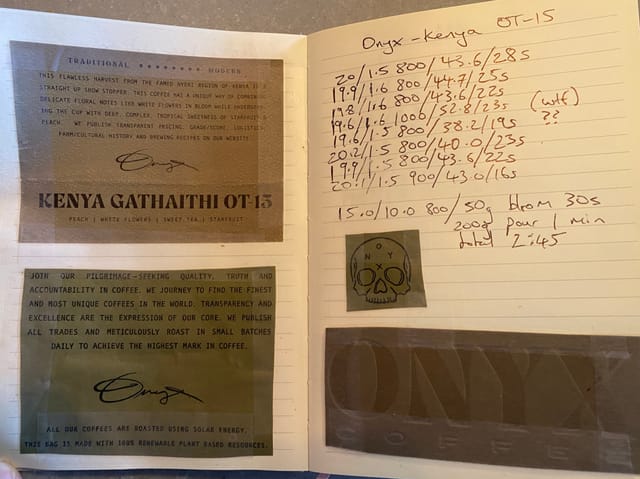 TRADITIONAL •••••••• MODERN
THIS FLAWLESS HARVEST FROM THE FAMED NYERI REGION OF KENYA IS A
STRAIGHT UP SHOW STOPPER. THIS COFFEE HAS A UNIQUE WAY OF COMBINING
DELICATE FLORAL NOTES LIKE WHITE FLOWERS IN BLOOM WHILE UNDERGIRDING
THE CUP WITH DEEP, COMPLEX, TROPICAL SWEETNESS OF STARFRUIT &
PEACH. WE PUBLISH TRANSPARENT PRICING, GRADE/SCORE, LOGISTICS
FARM/CULTURAL HISTORY AND BREWING RECIPES ON OUR WEBSITE.
Onyx
KENYA GATHAITHI OT-15
PEACH | WHITE FLOWERS | SWEET TEA | STARFRUIT
JOIN OUR PILGRIMAGE—SEEKING QUALITY, TRUTH AND
ACCOUNTABILITY IN COFFEE. WE JOURNEY TO FIND THE FINEST
AND MOST UNIQUE COFFEES IN THE WORLD. TRANSPARENCY AND
EXCELLENCE ARE THE EXPRESSION OF OUR CORE. WE PUBLISH
ALL TRADES AND METICULOUSLY ROAST IN SMALL BATCHES
DAILY TO ACHIEVE THE HIGHEST MARK IN COFFEE.
Onyx
ALL OUR COFFEES ARE ROASTED USING SOLAR ENERGY.
THIS BAG IS MADE WITH 100% RENEWABLE PLANT BASED RESOURCES.
Onyx - Kenya OT-15
20/1.5 800/43.6/28s
19.9/1.6 800/44.7/25s
19.8/1.6 800/43.6/22s
19.6/1.6 1000/52.8/23s (wtf)
19.6/1.5 800/38.2/19s ??
20.2/1.5 800/40.0/23s
19.9/1.5 800/43.6/22s
20.1/1.5 900/43.0/16s
15.0/10.0 800/50g bloom 30s
200g pour 1 min
total 2:45
ONYX
ONYX
COFFEE